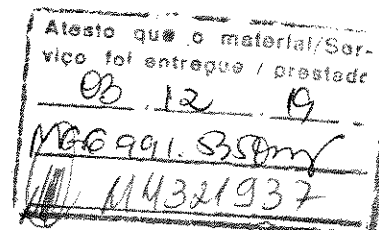 Atesto que o material/Ser-
viço foi entregue / prestado
03 . 12 . 19
MG6 991.
MM321937